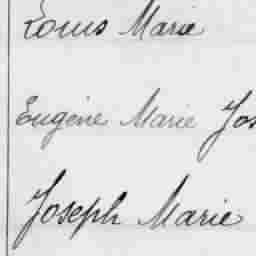 Louis Marie
Eugène Marie Jos
Joseph Marie